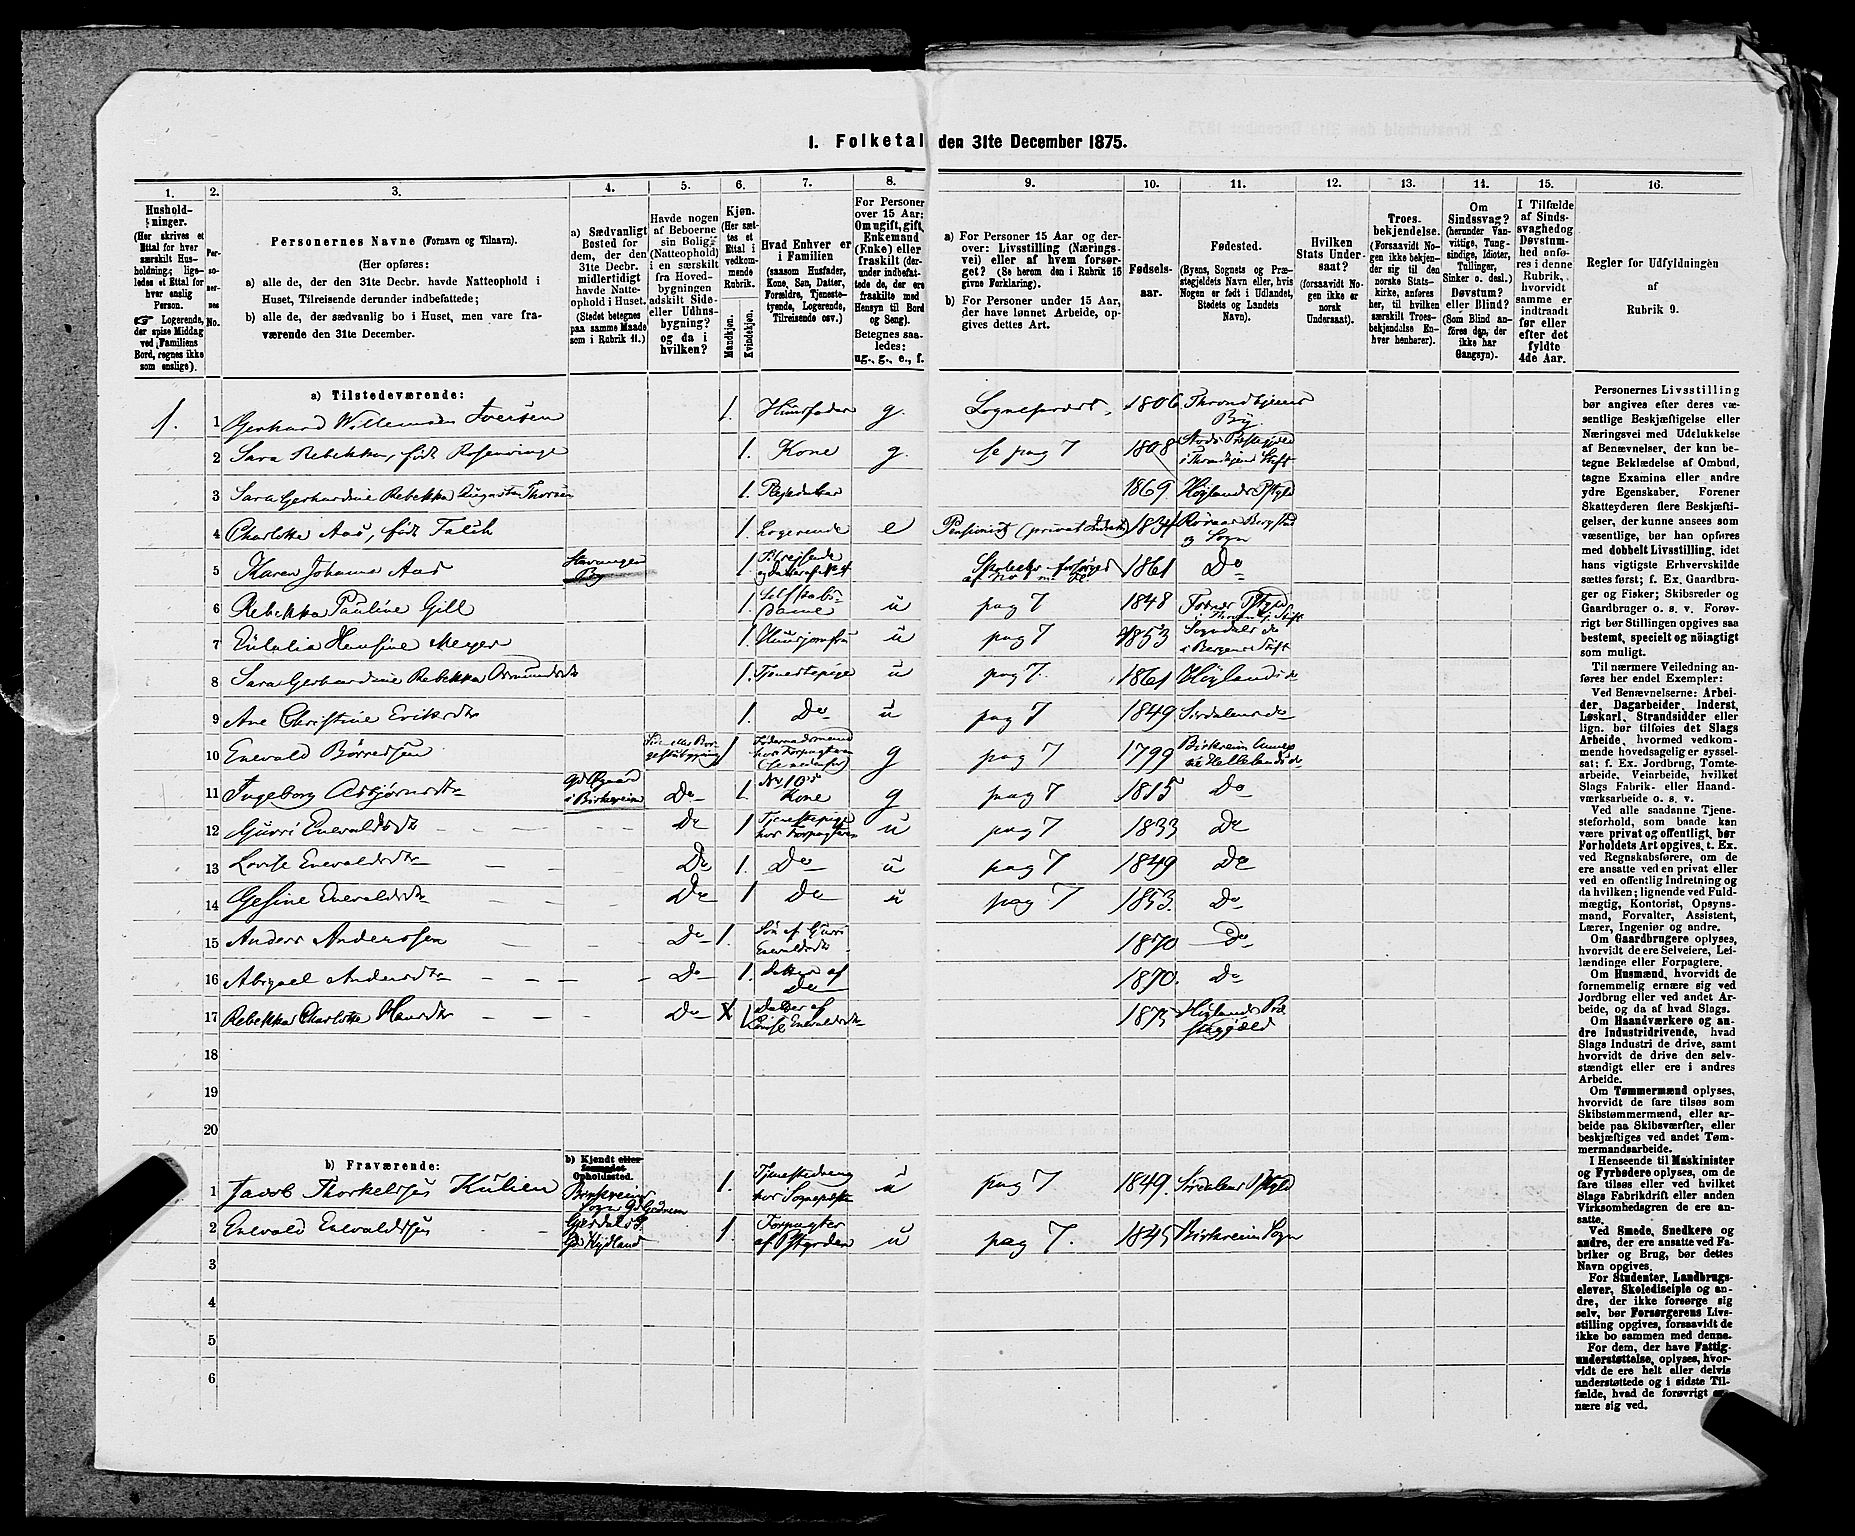 I. Folketal den 31te December 1875.
1. 2. 3. 4. 5. 6. 7. 8. 9. 10. 11. 12. 13. 14. 15. 16.
Hushold-
ninger.
(Her skrives et
Ettal for hver
særskilt Hus-
holdning; lige-
ledes et Ettal for
hver enslig
Person.
Logerende,
der spise Middag
ved Familiens
Bord, regnes ikke
som enslige).
Per-
so-
ner-
nes
No.
Personernes Navne (Fornavn og Tilnavn).
(Her opføres:
a) alle de, der den 31te Decbr. havde Natteophold i
Huset, Tilreisende derunder indbefattede;
b) alle de, der sædvanlig bo i Huset, men vare fra-
værende den 31te December.
a) Sædvanligt
Bosted for
dem, der den
31te Decbr.
midlertidigt
havde Natte-
ophold i Huset.
(Stedet betegnes
paa samme Maade
som i Rubrik 11.)
Havde nogen
af Beboerne
sin Bolig
(Natteophold)
i en særskilt
fra Hoved-
bygningen
adskilt Side-
eller Udhus-
bygning?
og da i
hvilken?
Kjøn.
(Her sæt-
tes et
Ettal i
vedkom-
mende
Rubrik.
Mandkjøn.
Kvindekjøn.
Hvad Enhver er
i Familien
(saasom Husfader,
Kone, Søn, Datter,
Forældre, Tjeneste-
tyende, Logerende,
Tilreisende osv.)
For Personer
over 15 Aar:
Om ugift, gift,
Enkemand
(Enke) eller
fraskilt (der-
under indbefat-
tede de, der ere
fraskilte med
Hensyn til Bord
og Seng).
Betegnes saa-
ledes:
ug., g., e., f.
a) For Personer 15 Aar og der-
over: Livsstilling (Nærings-
vei) eller af hvem forsør-
get? (Se herom den i Rubrik 16
givne Forklaring).
b) For Personer under 15 Aar,
der have lønnet Arbeide, op-
gives dettes Art.
Fødsels-
aar.
Fødested.
(Byens, Sognets og Præ-
stegjeldets Navn eller, hvis
Nogen er født i Udlandet,
Stedets og Landets
Navn).
Hvilken
Stats Under-
saat?
(forsaavidt No-
gen ikke er
norsk
Undersaat).
Troes-
bekjendelse.
(Forsaavidt No-
gen ikke bekjen-
der sig til den
norske Stats-
kirke, anføres
her, til hvilken
særskilt Troes-
bekjendelse En-
hver henhører).
Om
Sindssvag?
(herunder Van-
vittige, Tung-
sindige, Idioter,
Tullinger,
Sinker o. desl.)
Døvstum?
eller Blind?
(Som Blind an-
føres den, der
ikke har
Gangsyn).
I Tilfælde
af Sinds-
svaghed og
Døvstum-
hed anfø-
res i denne
Rubrik,
hvorvidt
samme er
indtraadt
før eller
efter det
fyldte
4de Aar.
Regler for Udfyldningen
af
Rubrik 9.
a) Tilstedeværende:
1. 1 Gerhard Willemsen Iversen 1. Huusfader g. Sognepræst. 1806 Throndhjems By.
2 Sara Rebekka, født Rosenvinge 1. Kone g. se pag 7 1808 i Throndhjems Stift
3 Sara Gerhardine Rebekka Augusta Thorsen 1. Plejedatter 1869 Høylands Pstgld
4 Charlotte Aas, født Falch 1. Logerende e Pensionist 1834 Røraas og Sogn
5 Karen Johanna Aas Stavanger By 1 Tilrejsende og datter af No 4 1861 Do
6 Rebekka Pauline Gill 1. Selskabs-Dame u pag 7 1848 i Throndhj. Stift
7 Eulalia Hansine Meyer 1. Huusjomfru u pag 7 1853 Sogndals do i Bergens Stift
8 Sara Gerhardine Rebekka Osmundsdtr 1. Tjenestepige u pag 7. 1861 Høylands do
9 Ane Christine Eriksdtr 1. Do u pag 7 1849 Sirdalens do
10 Enevald Børresen 1 Føderaadsmand hos Forpagteren g pag 7 1799 Birkreim Annex til Hellelands do
11 Ingeborg Asbjørnsdtr i Birkreim Do 1. No 10s Kone g pag 7 1815 Do
12 Gurri Enevaldsdtr Do 1 Tjenestepige hos Forpagteren u pag 7 1833 Do
13 Lovise Enevaldsdtr Do 1. Do u pag 7 1849 Do
14 Gesine Enevaldsdtr Do 1 Do u pag 7 1853. Do
15 Anders Andersen Do 1. Søn af Gurri Enevaldsdtr 1870 Do
16 Abigael Andersdtr Do 1. datter af Do 1870. Do
17 Rebekka Charlotte Hansdtr Do 1 Datter af Lovise Enevaldsdtr 1875 Høylands Præstegjæld
18
19
20
b) Fraværende:
b) Kjendt eller
formodet
Opholdssted.
1 Jacob Thorkelsen 1. Tjenestedreng hos Sognepræsten u pag 7 1849. Sirdalens Pstgld
2 Enevald Enevaldsen 1. Forpagter u pag 7. 1845 Birkreim Sogn
3
4
5
6
Personernes Livsstilling
bør angives efter deres væ-
sentlige Beskjæftigelse eller
Næringsvei med Udelukkelse
af Benævnelser, der kun be-
tegne Beklædelse af Ombud,
tagne Examina eller andre
ydre Egenskaber. Forener
Skatteyderen flere Beskjæfti-
gelser, der kunne ansees som
væsentlige, bør han opføres
med dobbelt Livsstilling, idet
hans vigtigste Erhvervskilde
sættes først; f. Ex. Gaardbru-
ger og Fisker; Skibsreder og
Gaardbruger o. s. v. Forøv-
rigt bør Stillingen opgives saa
bestemt, specielt og nøiagtigt
som muligt.
Til nærmere Veiledning an-
føres her endel Exempler:
Ved Benævnelserne: Arbei-
der, Dagarbeider, Inderst,
Løskarl, Strandsidder eller
lign. bør tilføies det Slags
Arbeide, hvormed vedkom-
mende hovedsagelig er syssel-
sat; f. Ex. Jordbrug, Tomte-
arbeide, Veiarbeide, hvilket
Slags Fabrik- eller Haand-
værksarbeide o. s. v.
Ved alle saadanne Tjene-
steforhold, som baade kan
være privat og offentligt, bør
Forholdets Art opgives, t. Ex.
ved Regnskabsførere, om de
ere ansatte ved en privat eller
ved en offentlig Indretning og
da hvilken; lignende ved Fuld-
mægtig, Kontorist, Opsyns-
mand, Forvalter, Assistent,
Lærer, Ingeniør og andre.
Om Gaardbrugere oplyses,
hvorvidt de ere Selveiere, Lei-
lændinge eller Forpagtere.
Om Husmænd, hvorvidt de
fornemmelig ernære sig ved
Jordbrug eller ved andet Ar-
beide, og da af hvad Slags.
Om Haandværkere og an-
dre Industridrivende, hvad
Slags Industri de drive, samt
hvorvidt de drive den selv-
stændigt eller ere i andres
Arbeide.
Om Tømmermænd oplyses,
hvorvidt de fare tilsøs som
Skibstømmermænd, eller ar-
beide paa Skibsværfter, eller
beskjæftiges ved andet Tøm-
mermandsarbeide.
I Henseende til Maskinister
og Fyrbødere oplyses, om de
fare tilsøs eller ved hvilket
Slags Fabrikdrift eller anden
Virksomhedsgren de ere an-
satte.
Ved Smede, Snedkere og
andre, der ere ansatte ved Fa-
briker og Brug, bør dettes
Navn opgives.
For Studenter, Landbrugs-
elever, Skoledisciple og an-
dre, der ikke forsørge sig
selv, bør Forsørgerens Livs-
stilling opgives, forsaavidt de
ikke bo sammen med denne.
For dem, der have Fattig-
understøttelse, oplyses, hvor-
vidt de ere helt eller delvis
understøttede og i sidste Til-
fælde, hvad de forøvrigt er-
nære sig ved.